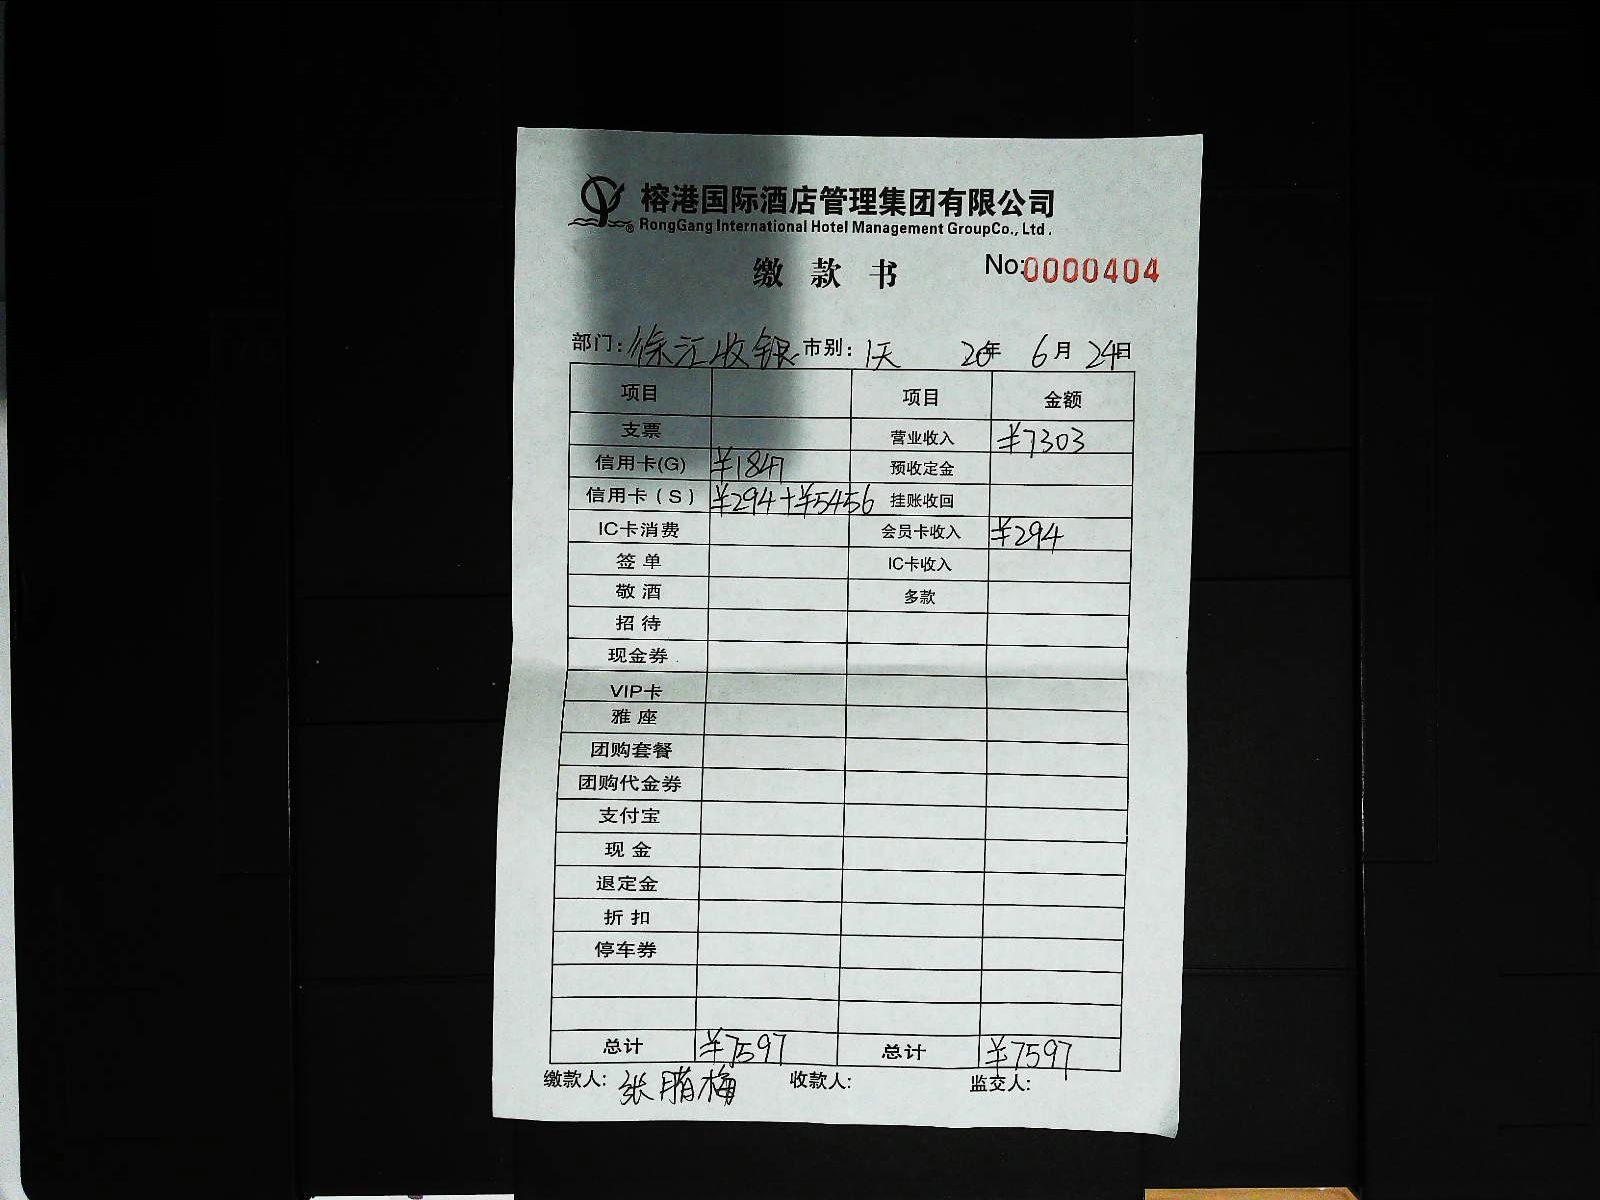 榕港国际酒店管理集团有限公司
® RongGang International Hotel Management GroupCo., Ltd.
缴款书 No:0000404
部门: 徐汇收银 市别: 1天 20年 6月 24日
项目 项目 金额
支票 营业收入 ¥7303
信用卡(G) ¥1847 预收定金
信用卡(S) ¥294+¥5456 挂账收回
IC卡消费 会员卡收入 ¥294
签单 IC卡收入
敬酒 多款
招待
现金券
VIP卡
雅座
团购套餐
团购代金券
支付宝
现金
退定金
折扣
停车券
总计 ¥7597 总计 ¥7597
缴款人: 张 梅 收款人: 监交人: